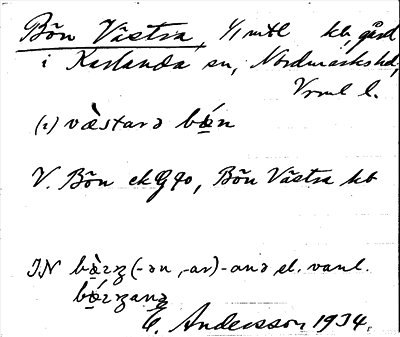 Bön Västra, 1/1 mtl kb, gård
i Karlanda sn, Nordmarks hd,
Vrml l.
(i) væ̀starə bǿn
V. Bön ek 940, Bön Västra kb
IN (-ən, -ar) -anə el. vanl.
E. Andersson 1934.